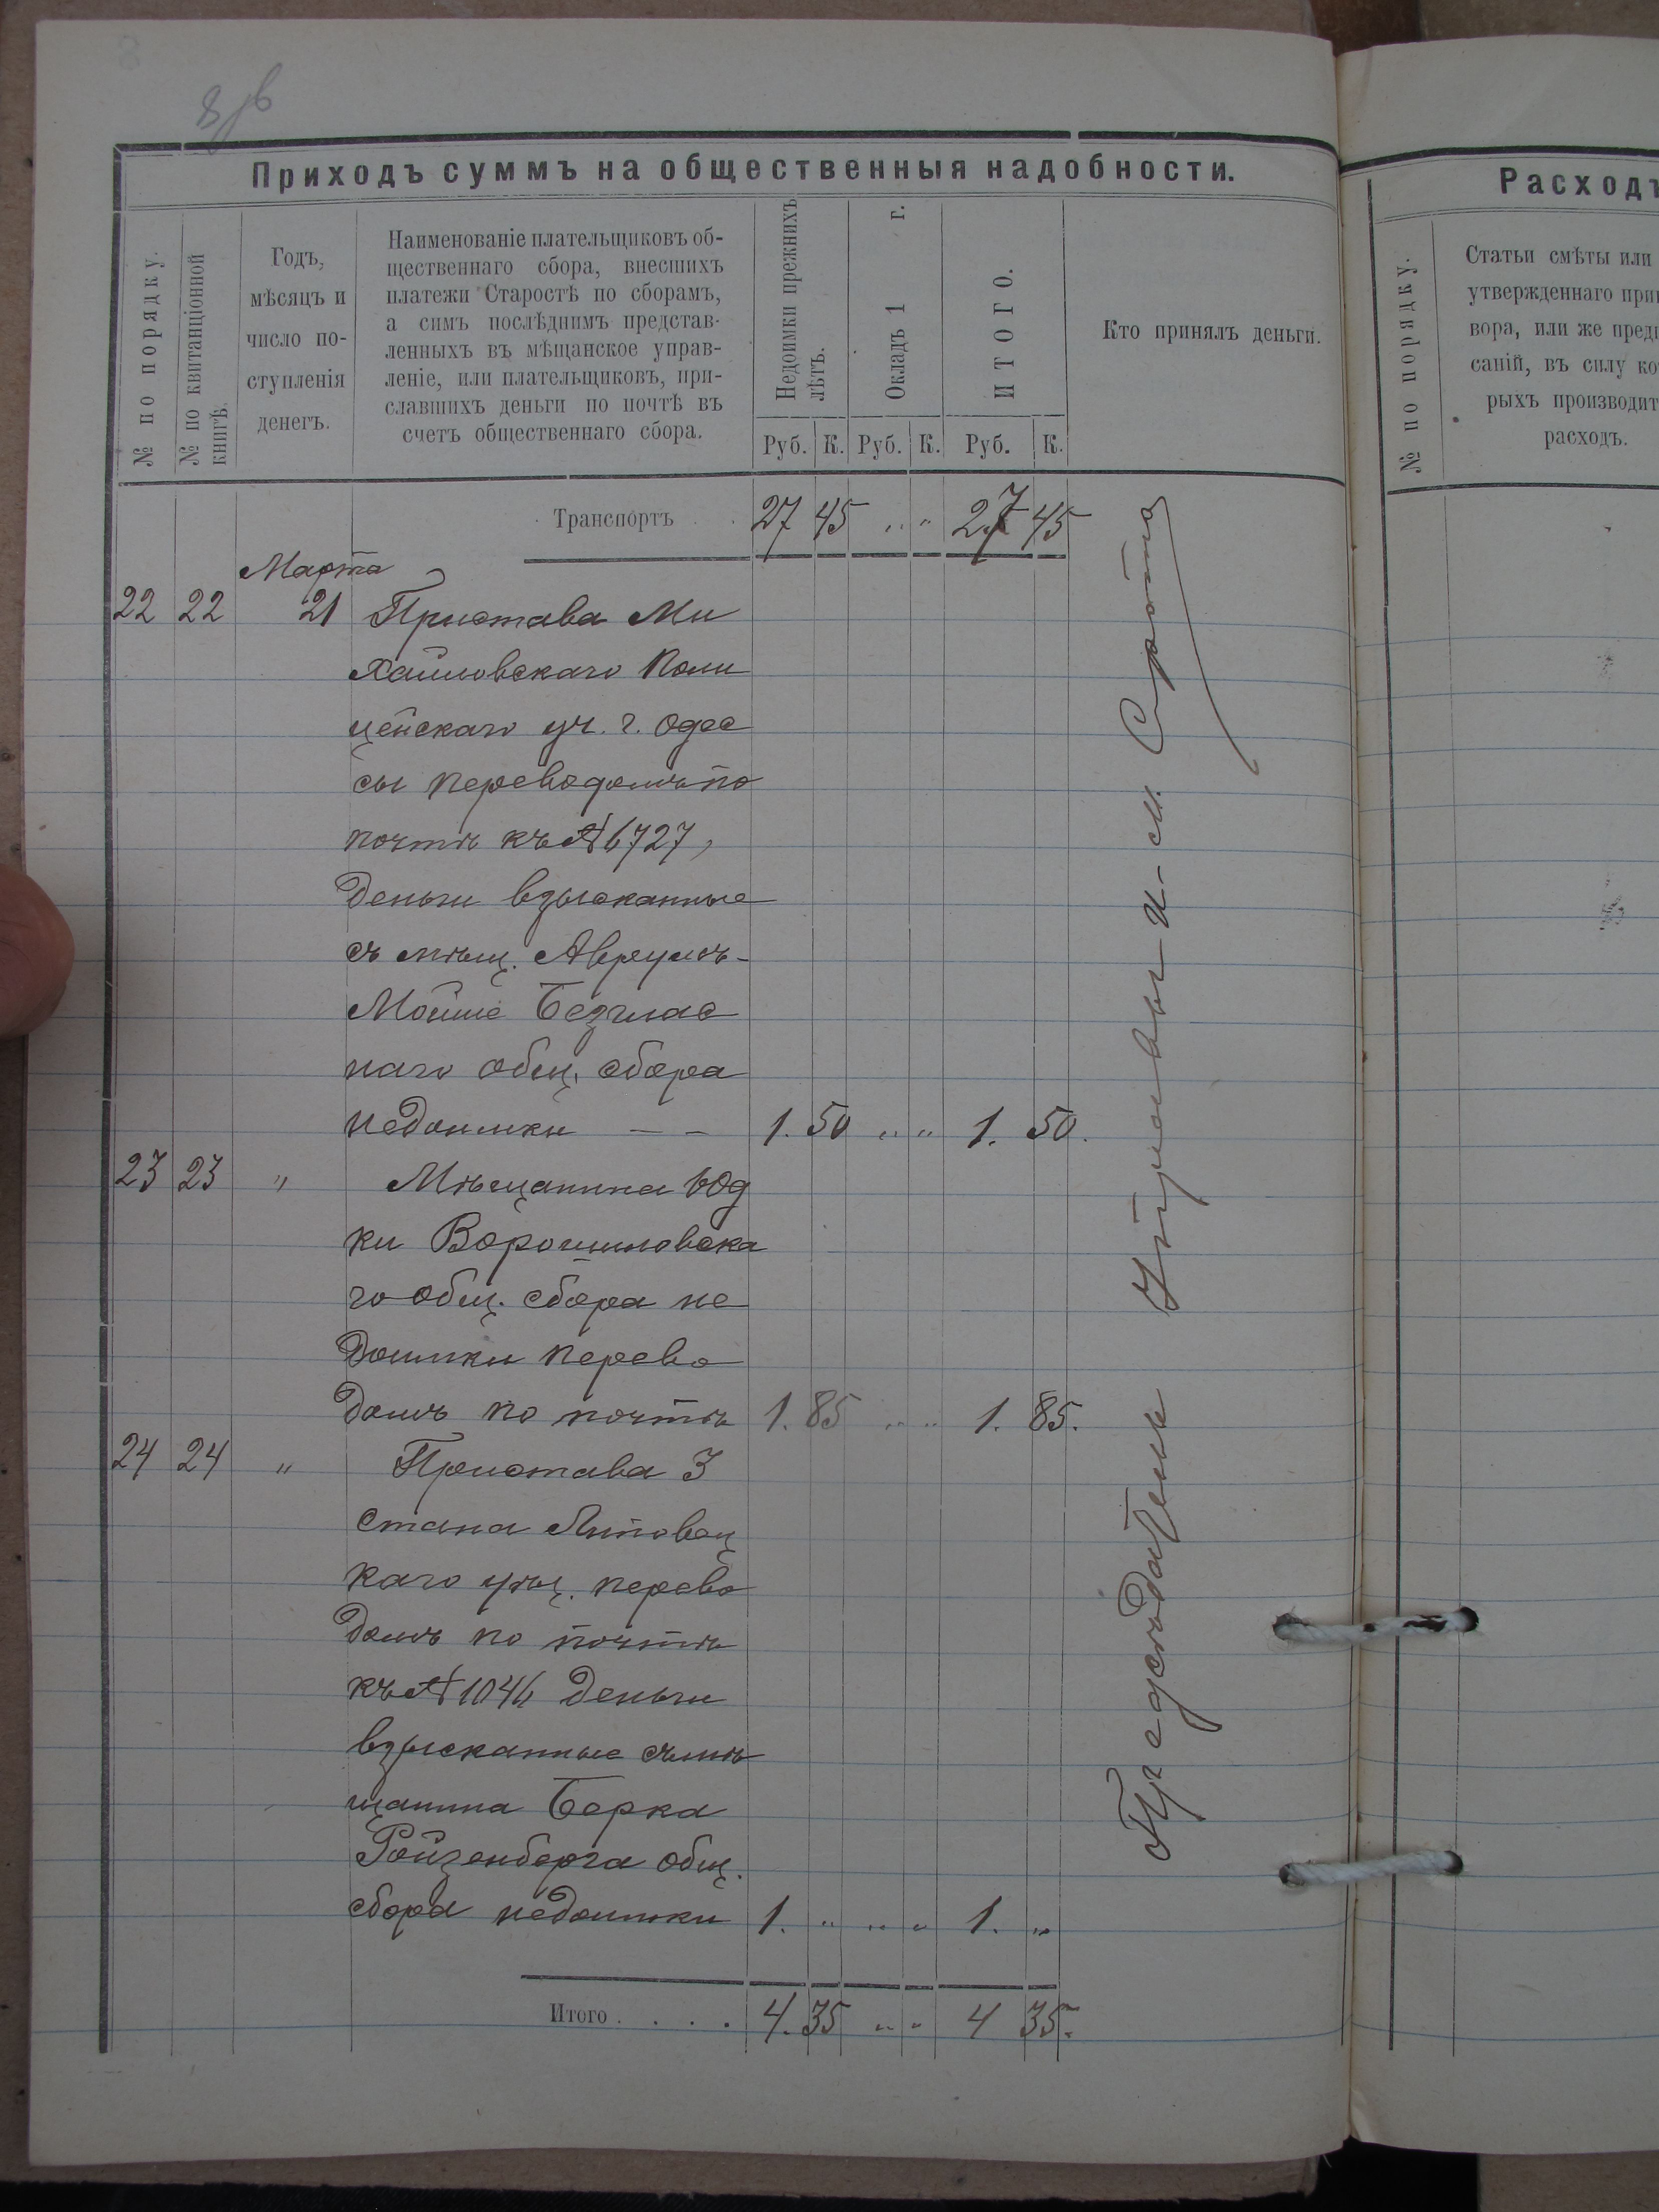 8 об
Приходъ суммъ на общественныя надобности.
№ по порядку.
№ по квитанціонной
книгѣ.
Годъ,
мѣсяцъ и
число по-
ступленія
денегъ.
Наименованіе плательщиковъ об-
щественнаго сбора, внесшихъ
платежи Старостѣ по сборамъ,
а симъ послѣднимъ представ-
ленныхъ въ мѣщанское управ-
леніе, или плательщиковъ, при-
славшихъ деньги по почтѣ въ
счетъ общественнаго сбора.
Недоимки прежнихъ
лѣтъ.
Окладъ 1 г.
ИТОГО.
Кто принялъ деньги.
Руб. К. Руб. К. Руб. К.
Транспортъ . . 27 45 " " 27 45
Марта
22 22 21 Пристава Ми
хайловскаго Поли
цейскаго уч. г. Одес
сы переводомъ по
почтѣ къ № 6727,
деньги взысканные
съ мѣщ. Аврумъ-
Мойше Безглас
наго общ. сбора
недоимки — — 1. 50 " " 1. 50.
23 23 " Мѣщанина Юд
ки Ворошиловска
го общ. сбора не
доимки перево
домъ по почтѣ 1. 85 " " 1. 85.
24 24 " Пристава 3
стана Липовец
каго уѣз. перево
домъ по почтѣ
къ № 1046 деньги
взысканные съ мѣ
щанина Берка
Ройзенберга общ.
сбора недоимки 1. " " " 1. "
Итого . . . . 4. 35 " " 4 35.
Предсѣдатель Управы
Расходъ
№ по порядку.
Статьи смѣты или
утвержденнаго при
вора, или же пред
саній, въ силу ко
рыхъ производит
расходъ.